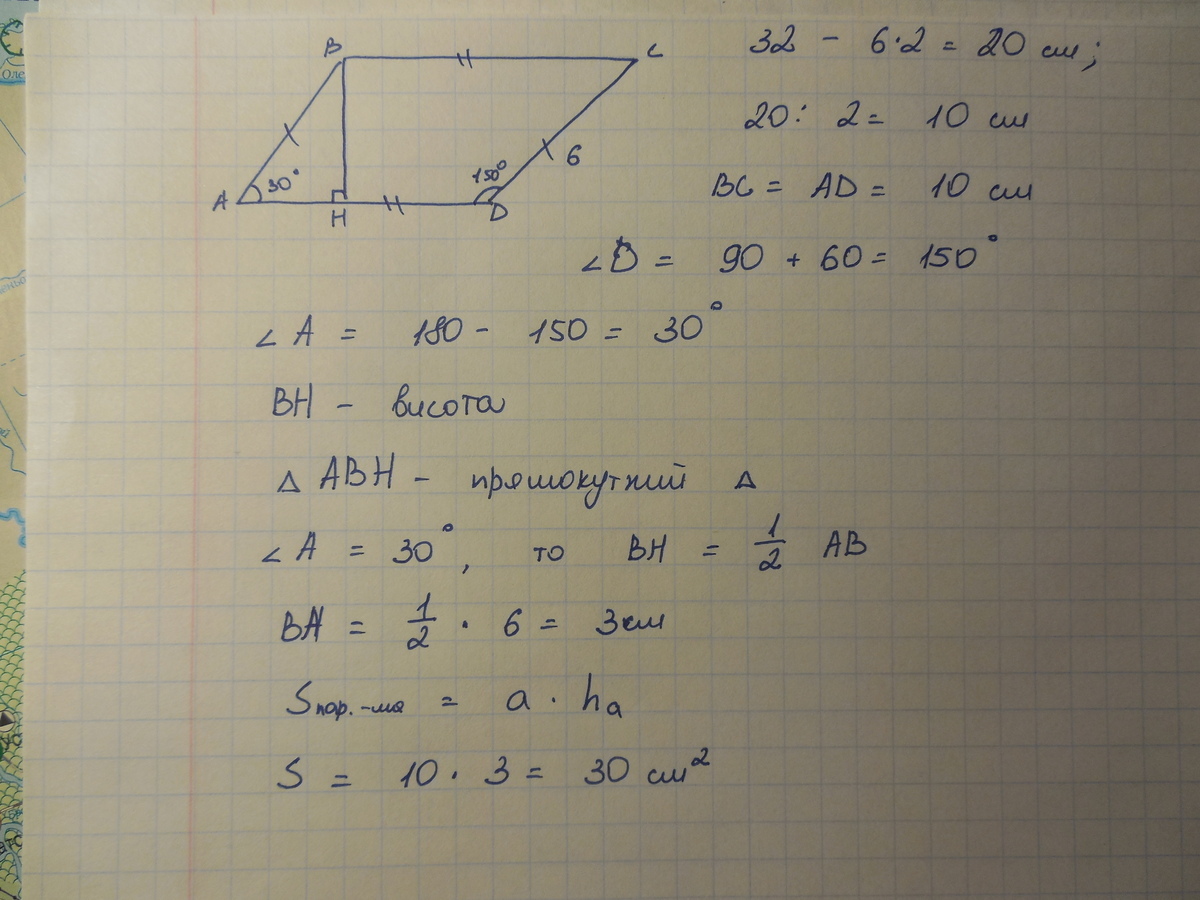 B
C
32 - 6·2 = 20 см;
20 : 2 = 10 см
6
150°
30°
A
H
D
BC = AD = 10 см
∠D = 90 + 60 = 150°
∠A = 180 - 150 = 30°
BH - висота
△ ABH - прямокутний △
∠A = 30°, то BH = 1/2 AB
BH = 1/2 · 6 = 3см
Sпар.-ма = a · hₐ
S = 10 · 3 = 30 см²